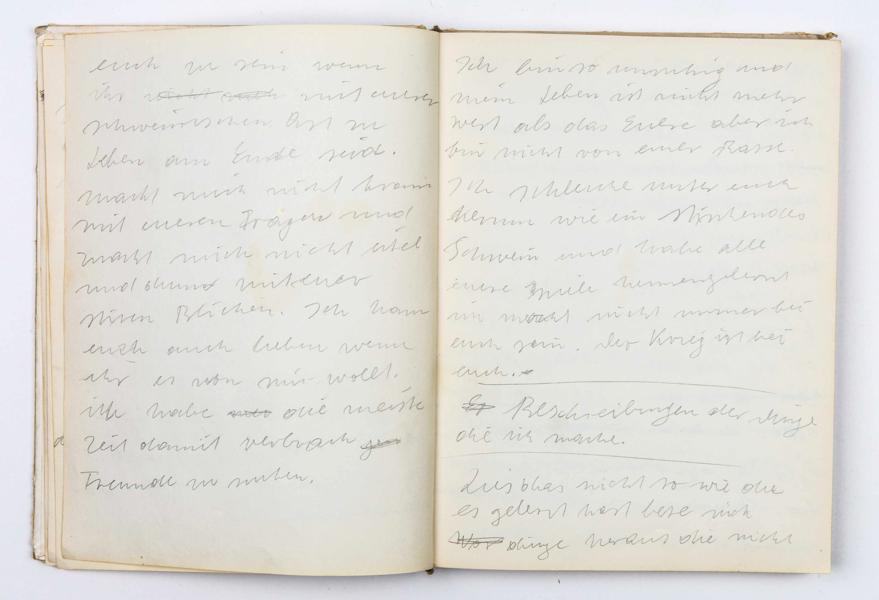 euch zu sein wenn
ihr nicht mit eurer
schweinischen Art zu
Leben am Ende seid.
macht mich nicht krank
mit eueren Fragen und
macht mich nicht eitel
und dumm mit euer
Blicken. Ich kann
euch auch lieben wenn
ihr es von mir wollt.
ich habe die meiste
Zeit damit verbracht
Freunde zu
Ich bin so unruhig und
mein Leben ist nicht mehr
wert als das Euere aber ich
bin nicht von eurer Rasse.
Ich schleiche unter euch
herum wie ein stinkendes
Schwein und habe alle
euere Spiele kennengelernt
um nicht immer bei
euch sein. der Krieg ist bei
euch.
Beschreibungen der dinge
die ich mache.
Lies das nicht so wie du
es gelernt hast lese mich
dinge heraus die nicht